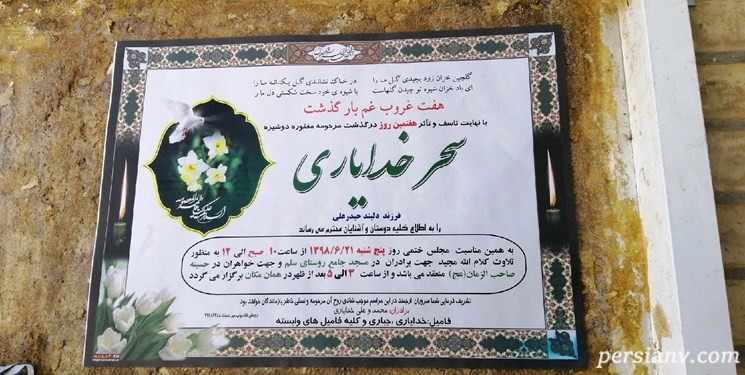 گلچین خزان زود بچیدی گل ما را
در خاک نشاندی گل یکدانه ما را
ای باد خزان شیوه تو چیدن گلهاست
با شیوه ی خود سخت شکستی دل ما را
هفت غروب غم بار گذشت
با نهایت تاسف و تأثر هفتمین روز درگذشت مرحومه مغفوره دوشیزه
سحر خدایاری
فرزند دلبند حیدرعلی
را به اطلاع کلیه دوستان و آشنایان محترم می رساند
به همین مناسبت مجلس ختمی روز پنج شنبه ۱۳۹۸/۶/۲۱ از ساعت ۱۰ صبح الی ۱۲ به منظور
تلاوت کلام الله مجید جهت برادران در مسجد جامع روستای سلم و جهت خواهران در حسینه
صاحب الزمان(عج) منعقد می باشد و از ساعت ۳ الی ۵ بعد از ظهر در همان مکان برگزار می گردد
تشریف فرمایی شما سروران ارجمند در این مراسم موجب شادی روح آن مرحومه و تسلی خاطر بازماندگان خواهد بود
برادران: محمد و علی خدایاری
فامیل: خدایاری، جباری و کلیه فامیل های وابسته
persianv.com